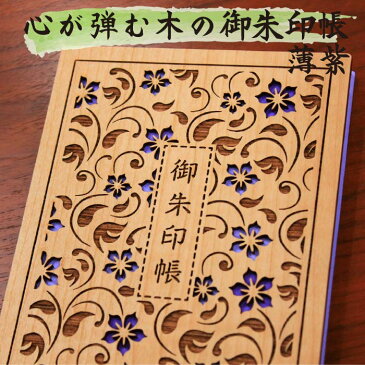 心が弾む木の御朱印帳
薄紫
御朱印帳